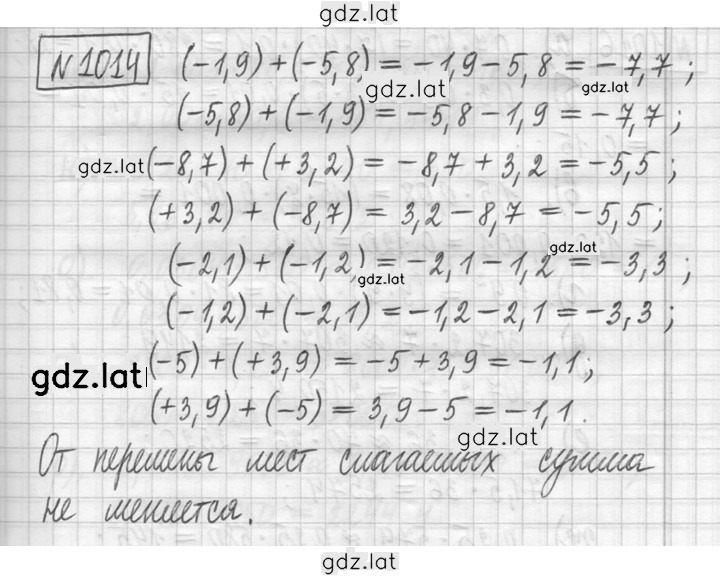 gdz.lat
№1014 (-1,9)+(-5,8)=-1,9-5,8=-7,7;
gdz.lat gdz.lat
(-5,8)+(-1,9)=-5,8-1,9=-7,7;
gdz.lat (-8,7)+(+3,2)=-8,7+3,2=-5,5;
(+3,2)+(-8,7)=3,2-8,7=-5,5;
gdz.lat
(-2,1)+(-1,2)=-2,1-1,2=-3,3;
gdz.lat
(-1,2)+(-2,1)=-1,2-2,1=-3,3;
gdz.lat (-5)+(+3,9)=-5+3,9=-1,1;
(+3,9)+(-5)=3,9-5=-1,1.
gdz.lat
От перемены мест слагаемых сумма
не меняется.
gdz.lat